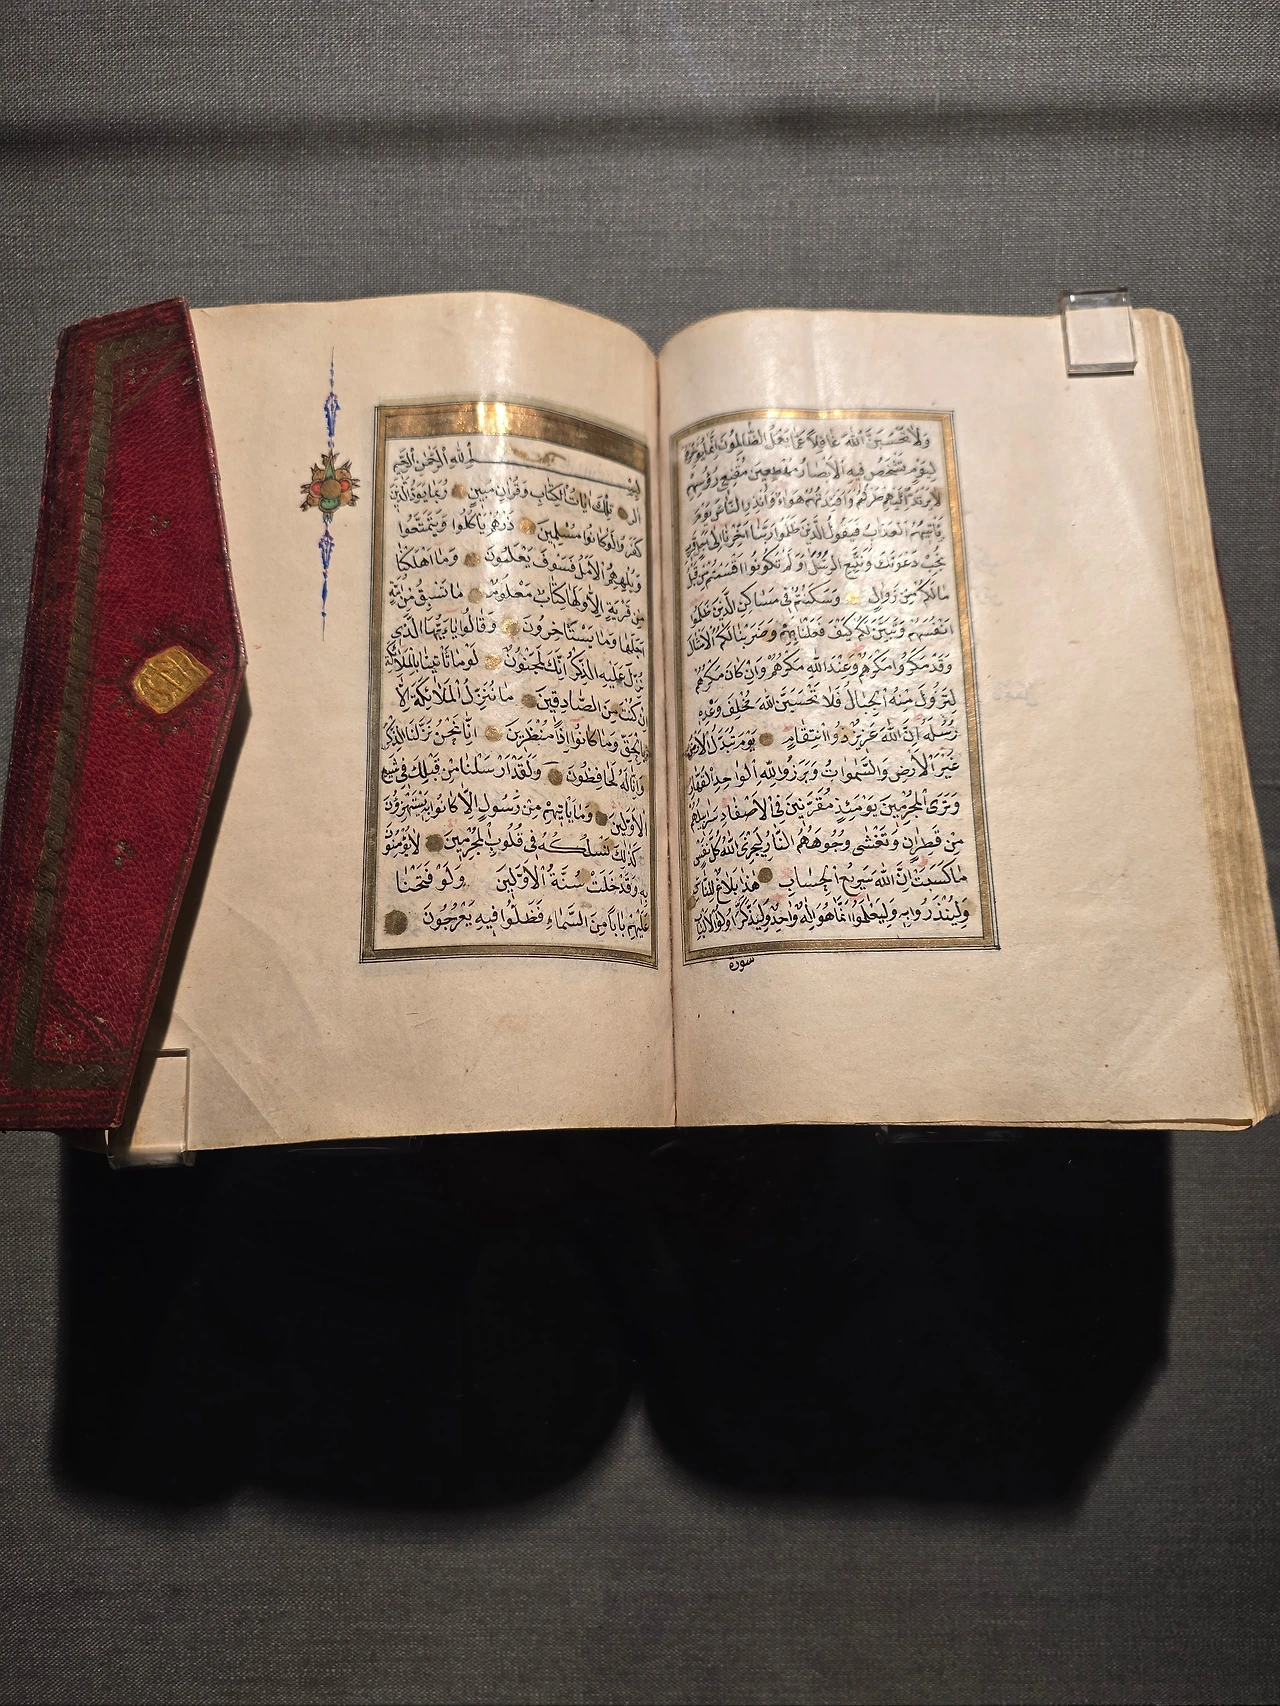 وَلَا تَحْسَبَنَّ اللّٰهَ غَافِلًا عَمَّا يَعْمَلُ الظَّالِمُونَ اِنَّمَا يُؤَخِّرُهُمْ
لِيَوْمٍ تَشْخَصُ فِيهِ الْاَبْصَارُ مُهْطِعِينَ مُقْنِعِى رُؤُسِهِمْ
لَا يَرْتَدُّ اِلَيْهِمْ طَرْفُهُمْ وَاَفْئِدَتُهُمْ هَوَاءٌ وَاَنْذِرِ النَّاسَ يَوْمَ
يَأْتِيهِمُ الْعَذَابُ فَيَقُولُ الَّذِينَ ظَلَمُوا رَبَّنَا اَخِّرْنَا اِلٰى اَجَلٍ قَرِيبٍ
نُجِبْ دَعْوَتَكَ وَنَتَّبِعِ الرُّسُلَ اَوَلَمْ تَكُونُوا اَقْسَمْتُمْ مِنْ قَبْلُ
مَالَكُمْ مِنْ زَوَالٍ وَسَكَنْتُمْ فِى مَسَاكِنِ الَّذِينَ ظَلَمُوا
اَنْفُسَهُمْ وَتَبَيَّنَ لَكُمْ كَيْفَ فَعَلْنَا بِهِمْ وَضَرَبْنَا لَكُمُ الْاَمْثَالَ
وَقَدْ مَكَرُوا مَكْرَهُمْ وَعِنْدَ اللّٰهِ مَكْرُهُمْ وَاِنْ كَانَ مَكْرُهُمْ
لِتَزُولَ مِنْهُ الْجِبَالُ فَلَا تَحْسَبَنَّ اللّٰهَ مُخْلِفَ وَعْدِهِ
رُسُلَهُ اِنَّ اللّٰهَ عَزِيزٌ ذُو انْتِقَامٍ يَوْمَ تُبَدَّلُ الْاَرْضُ
غَيْرَ الْاَرْضِ وَالسَّمٰوَاتُ وَبَرَزُوا لِلّٰهِ الْوَاحِدِ الْقَهَّارِ
وَتَرَى الْمُجْرِمِينَ يَوْمَئِذٍ مُقَرَّنِينَ فِى الْاَصْفَادِ سَرَابِيلُهُمْ
مِنْ قَطِرَانٍ وَتَغْشٰى وُجُوهَهُمُ النَّارُ لِيَجْزِىَ اللّٰهُ كُلَّ نَفْسٍ
مَا كَسَبَتْ اِنَّ اللّٰهَ سَرِيعُ الْحِسَابِ هٰذَا بَلَاغٌ لِلنَّاسِ
وَلِيُنْذَرُوا بِهِ وَلِيَعْلَمُوا اَنَّمَا هُوَ اِلٰهٌ وَاحِدٌ وَلِيَذَّكَّرَ اُولُوا الْاَلْبَابِ
سورة
بِسْمِ اللّٰهِ الرَّحْمٰنِ الرَّحِيمِ
الٓرٰ تِلْكَ اٰيَاتُ الْكِتَابِ وَقُرْاٰنٍ مُبِينٍ رُبَمَا يَوَدُّ الَّذِينَ
كَفَرُوا لَوْ كَانُوا مُسْلِمِينَ ذَرْهُمْ يَأْكُلُوا وَيَتَمَتَّعُوا
وَيُلْهِهِمُ الْاَمَلُ فَسَوْفَ يَعْلَمُونَ وَمَا اَهْلَكْنَا
مِنْ قَرْيَةٍ اِلَّا وَلَهَا كِتَابٌ مَعْلُومٌ مَا تَسْبِقُ مِنْ اُمَّةٍ
اَجَلَهَا وَمَا يَسْتَأْخِرُونَ وَقَالُوا يَا اَيُّهَا الَّذِى
نُزِّلَ عَلَيْهِ الذِّكْرُ اِنَّكَ لَمَجْنُونٌ لَوْ مَا تَأْتِينَا بِالْمَلٰئِكَةِ
اِنْ كُنْتَ مِنَ الصَّادِقِينَ مَا نُنَزِّلُ الْمَلٰئِكَةَ اِلَّا
بِالْحَقِّ وَمَا كَانُوا اِذًا مُنْظَرِينَ اِنَّا نَحْنُ نَزَّلْنَا الذِّكْرَ
وَاِنَّا لَهُ لَحَافِظُونَ وَلَقَدْ اَرْسَلْنَا مِنْ قَبْلِكَ فِى شِيَعِ
الْاَوَّلِينَ وَمَا يَأْتِيهِمْ مِنْ رَسُولٍ اِلَّا كَانُوا بِهِ يَسْتَهْزِؤُنَ
كَذٰلِكَ نَسْلُكُهُ فِى قُلُوبِ الْمُجْرِمِينَ لَا يُؤْمِنُونَ
بِهِ وَقَدْ خَلَتْ سُنَّةُ الْاَوَّلِينَ وَلَوْ فَتَحْنَا
عَلَيْهِمْ بَابًا مِنَ السَّمَاءِ فَظَلُّوا فِيهِ يَعْرُجُونَ